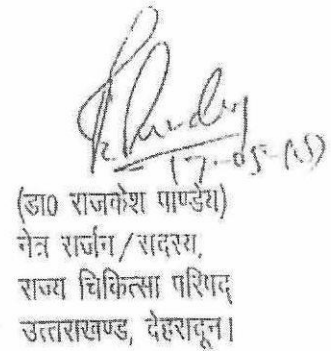 (डा0 राजकेश पाण्डेय)
नेत्र सर्जन/सदस्य,
राज्य चिकित्सा परिषद्
उत्तराखण्ड, देहरादून।